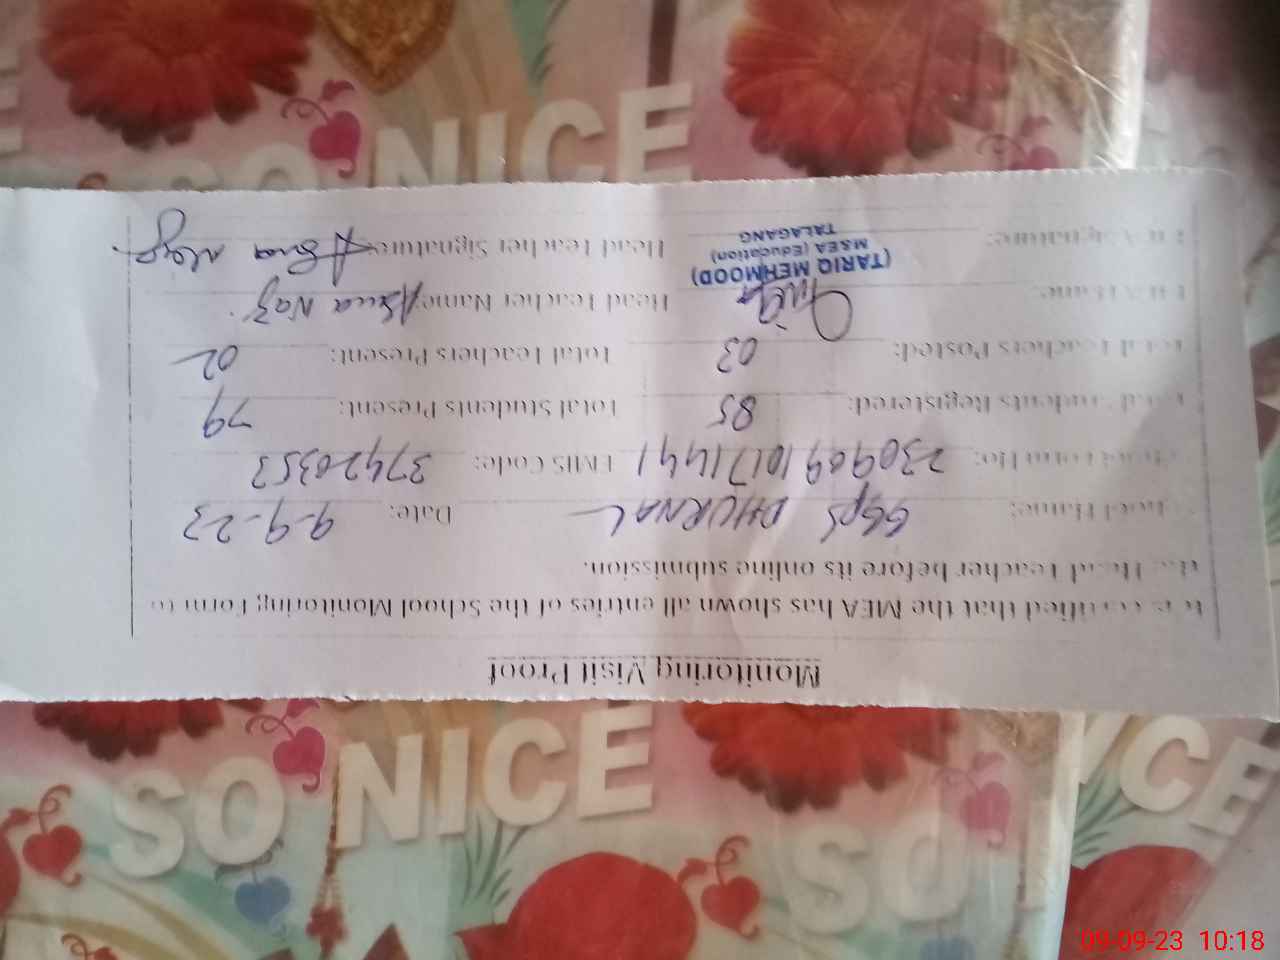 SO NICE
Monitoring Visit Proof
It is certified that the MEA has shown all entries of the School Monitoring Form to
the Head Teacher before its online submission.
School Name: GGPS DHURNAL Date: 9-9-23
EMIS Code: 37420353
Total Students Registered: 85 Total Students Present: 79
Total Teachers Posted: 03 Total Teachers Present: 02
MEA Name: Head Teacher Name: Asma Naz
(TARIQ MEHMOOD)
MSEA (Education)
TALAGANG
MEA Signature: Head Teacher Signature: Asma Naz
SO NICE
SO
ICE
09-09-23 10:18